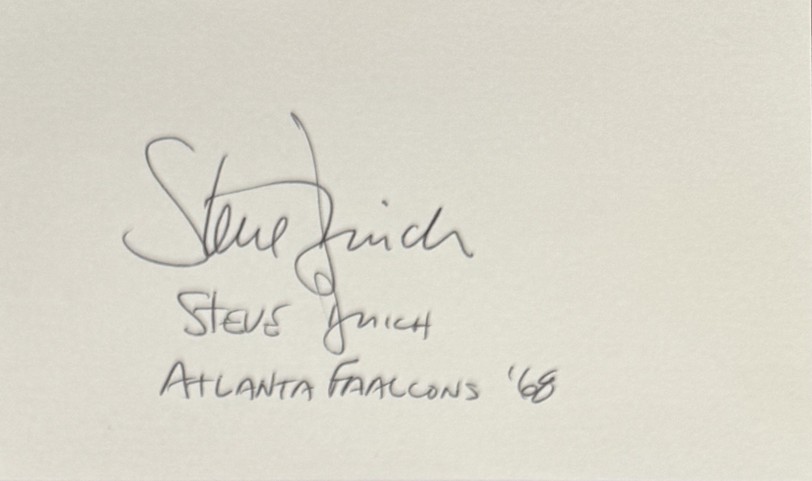 Steve Duich
STEVE DUICH
ATLANTA FAALCONS '68